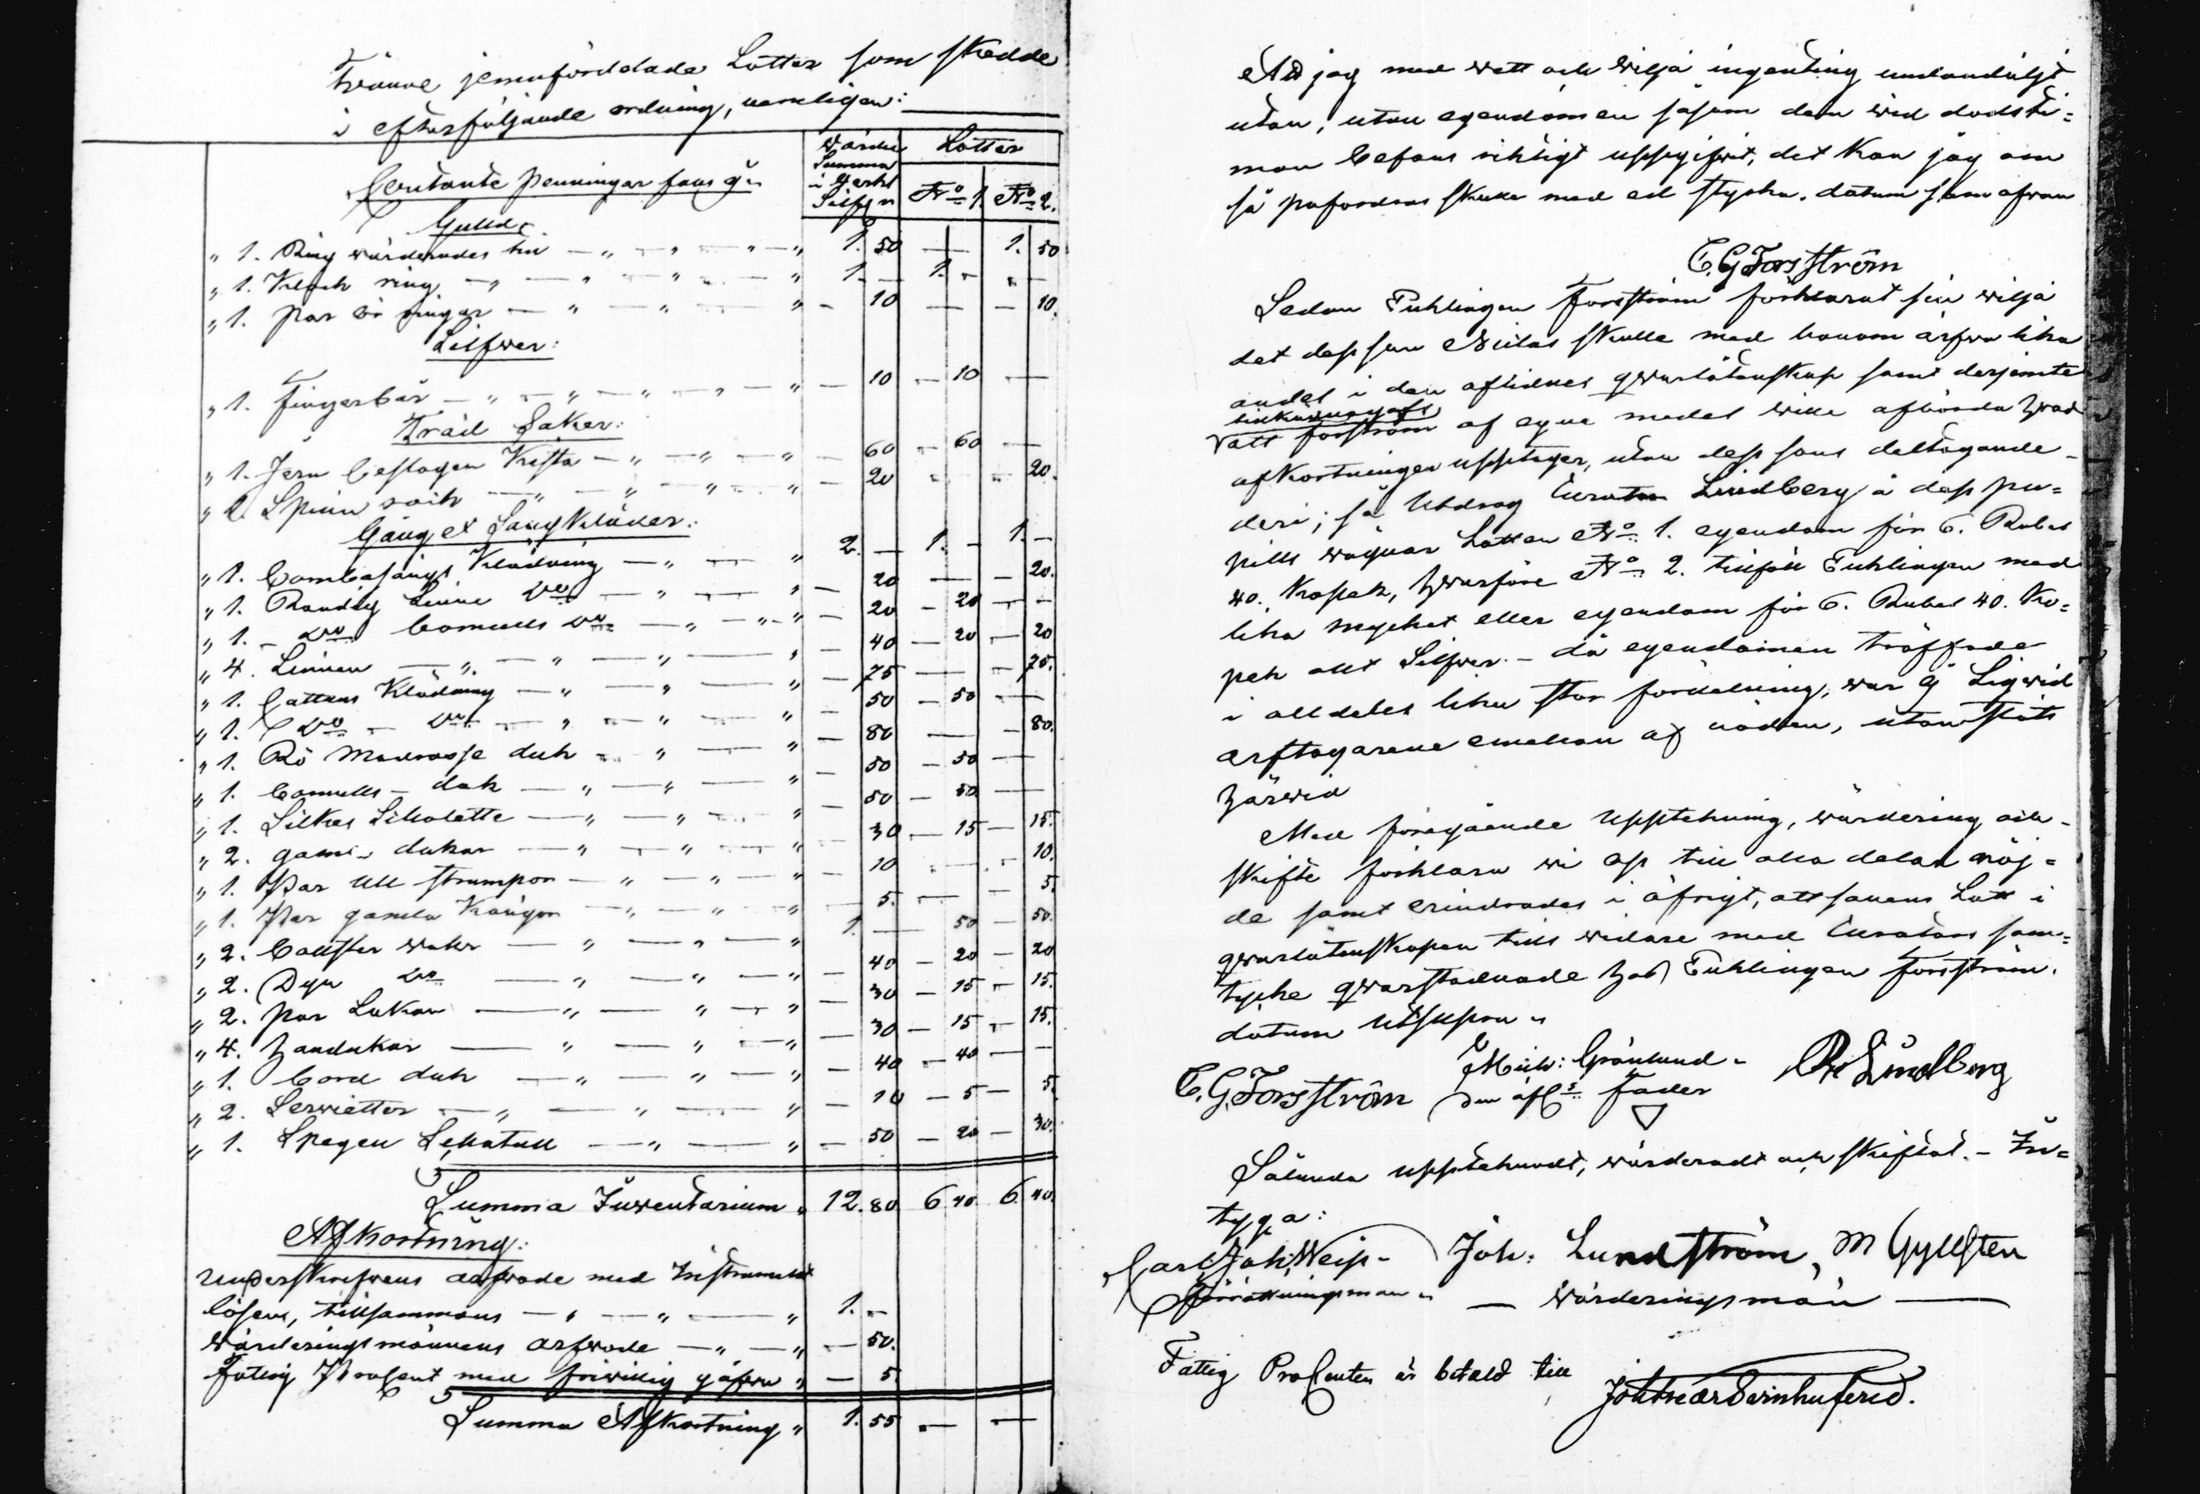 Tvänne jemnfördelade Lotter som skedde
i efterföljande ordning, nemligen:
Wärde Summa i Verkl Silfver
Lotter
Contante Penningar fans ej
No 1. No 2.
Guld.
" 1. Ring wärderades till — " — " — " — " 1. 50 — 1. 50
" 1. Klack ring — " — " — " — " 1. — 1. — " —
" 1. par ör ringar — " — " — " — 10 — — 10.
Silfwer:
" 1. fingerbår — " — " — " — " — " — 10 — 10 —
Träd Saker:
" 1. Jern beslagen Kista — " — " — " — 60 — 60 —
" 1. Spinn råck — " — " — " — " — 20 " " 20.
Gång et Säng Kläder:
" 1. Combafångs Klädning — " — " 2. — 1. — 1. —
" 1. Randig Linne Do — " — " — 20 — — 20.
" 1. — Do Bomulls Do — " — " — " — 20 — 20 — —
" 4. Linnen — " — " — " — " — 40 — 20 — 20
" 1. Cattuns Klädning — " — " — " — 75 — — 75.
" 1. Do — Do — " — " — " — 50 — 50 —
" 1. Rö Madrasse duk — " — " — 80 — — 80.
" 1. Bomulls — duk — " — " — " — 50 — 50 —
" 1. Silkes Silvolette — " — " — " — 50 — 50 —
" 2. gaml. dukar — " — " — " — 30 — 15 — 15.
" 1. Par Ull strumpor — " — " — " 10 — — 10.
" 1. Par gamla Kängor — " — " — " 5. — — 5.
" 2. Bolster war — " — " — " 1. — 50 — 50.
" 2. Dyn Do — " — " — " — 40 — 20 — 20
" 2. par Lakan — " — " — " — 30 — 15 — 15.
" 4. Handukar — " — " — " — 30 — 15 — 15.
" 1. Bord duk — " — " — " — 40 — 40 — —
" 2. Servietter — " — " — " — 10 — 5 — 5.
" 1. Spegen — " — " — 50 — 20 — 30.
Summa Inventarium " 12. 80 6 40 6. 40.
Afkortning:
Underskrifvens arfvode med
lösen, tillsammans — " — " — " 1. —
Wärderingsmännens arfvode — " — " — 50.
Fattig Procent med friwillig gåfwa " — 5.
Summa Afkortning " 1. 55 — —
Att jag med wett och wilja ingenting undandöljt
utan, utan egendomen såsom den wid dödsti=
man befans riktigt uppgifvit, det kan jag om
så pafordras skulle med ed styrka. datum som ofwan
C. G Forsström
Sedan Enklingen Forsström förklarat sin wilja
det dess son skulle med honom ärfwa lika
andel i den aflidnes qwarlåtenskap samt derjemte
Forsström af egna medel wille afbörda hvad
afkortningen upptager, utan dess sons deltagande
deri; så Utdrog Curator Lindberg å dess pu=
pills wägnar Lotten No 1. egendom för 6. Rubel
40. Kopek, hwarföre No 2. tillföll Enklingen med
lika mycket eller egendom för 6. Rubel 40. Ko=
pek allt Silfwer. — då egendomen träffade
i alldeles lika stor fördelning, war ej Liqvid
arftagarene emellan af nöden, utan
härwid
Med föregående Upptekning, wärdering och
skifte förklara wi oss till alla delar nöj=
de samt erindrades i öfrigt, att sonens Lott i
qwarlåtenskapen tills widare med Curators sam=
tycke qwarstadnade hos Enklingen Forsström.
datum Utsupra "
C. G. Forsström
Mich: Grönlund
Den afl:s fader
Lindberg
Sålunda upptecknadt, wärderadt och skiftat. — In=
tyga:
Carl Joh: Weiss
Förrättningsman "
Joh: Lundström, M Gyllsten
— Wärderingsmän —
Fattig Procenten är betald till